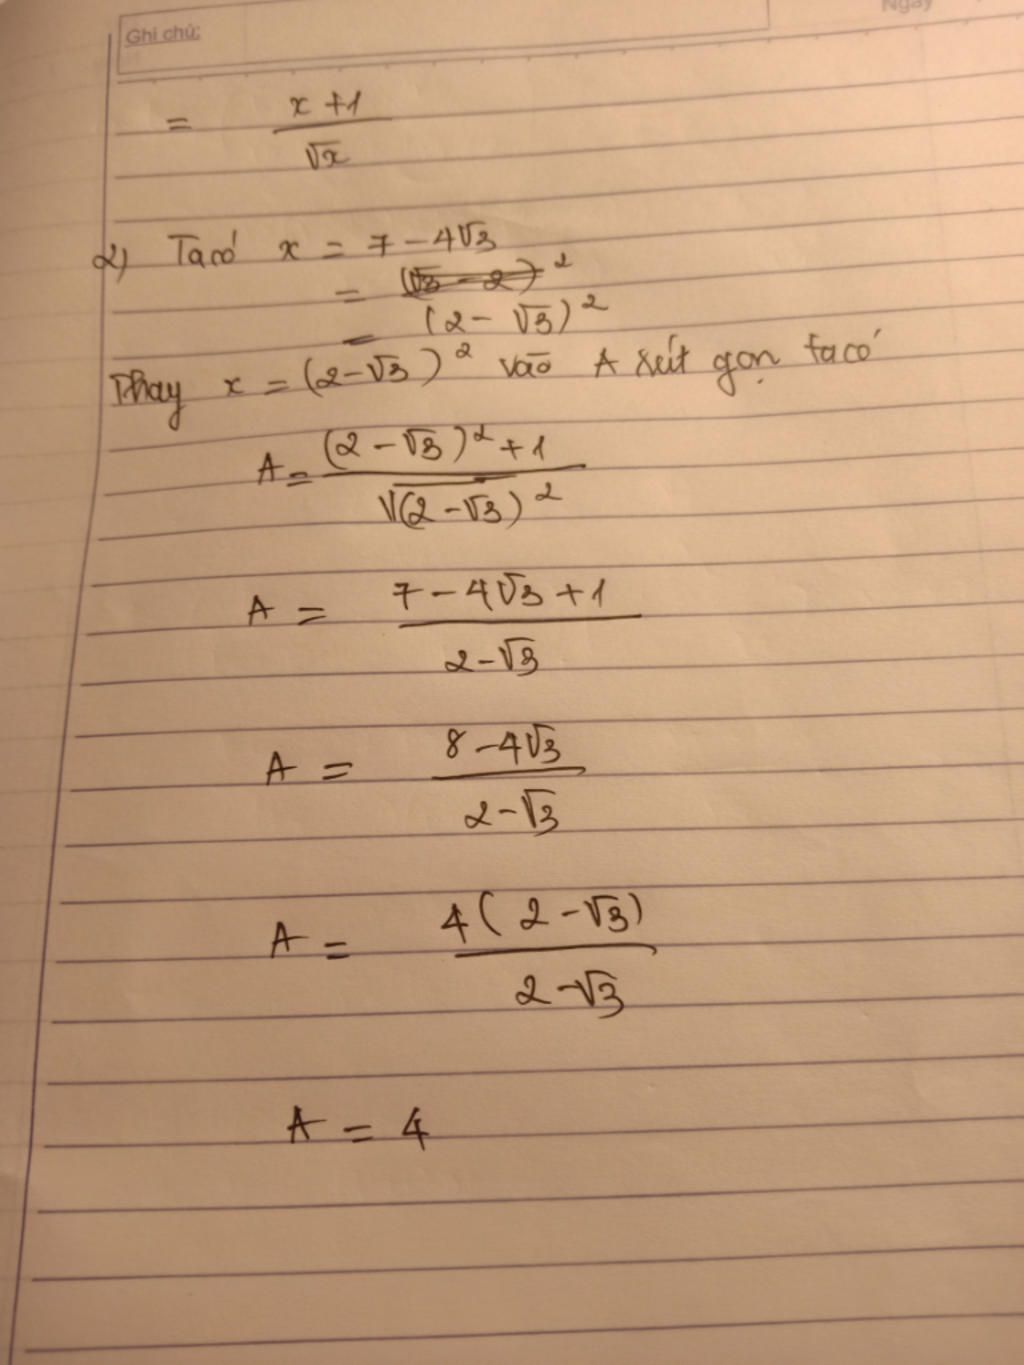 Ghi chú:
Ngày
= (x + 1)/√x
2) Ta có x = 7 - 4√3
= (√3 - 2)²
= (2 - √3)²
Thay x = (2-√3)² vào A rút gọn ta có
A = ((2-√3)² + 1)/√(2-√3)²
A = (7 - 4√3 + 1)/(2-√3)
A = (8 - 4√3)/(2-√3)
A = 4(2-√3)/(2-√3)
A = 4